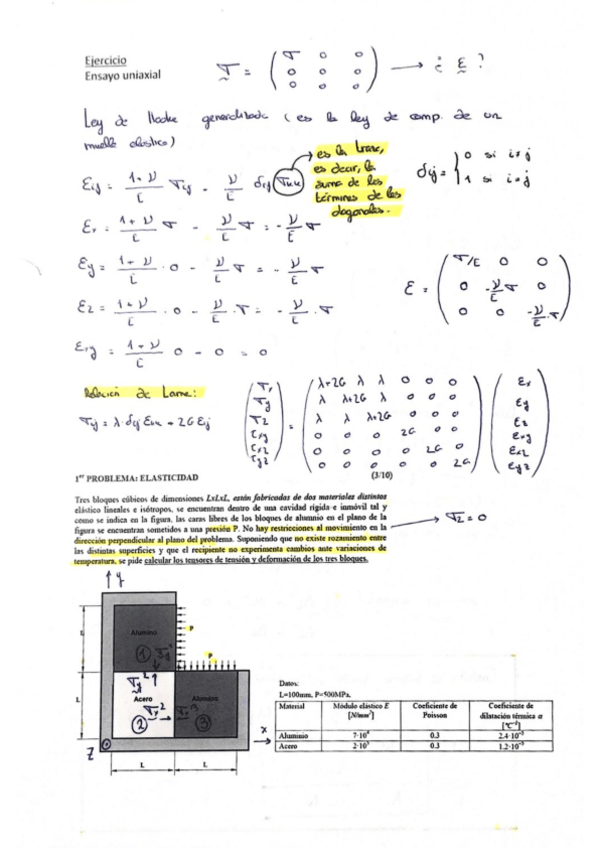 Ejercicio
Ensayo uniaxial
σ = ( σ 0 0
0 0 0
0 0 0 ) → ¿ ε ?
Ley de Hooke generalizada (es la ley de comp. de un
muelle elástico)
εij = 1+ν/E σij - ν/E δij σkk
es la traza,
es decir, la
suma de los
términos de las
diagonales.
δij = { 0 si i≠j
1 si i=j
εx = 1+ν/E σ - ν/E σ = -ν/E σ
εy = 1+ν/E · 0 - ν/E σ = - ν/E σ
εz = 1+ν/E · 0 - ν/E · σ = - ν/E · σ
εxy = 1+ν/E 0 - 0 = 0
ε = ( σ/E 0 0
0 -ν/E σ 0
0 0 -ν/E·σ )
Relación de Lame:
σij = λ·δij εkk + 2G εij
( σx σy σz τxy τxz τyz ) =
( λ+2G λ λ 0 0 0
λ λ+2G λ 0 0 0
λ λ λ+2G 0 0 0
0 0 0 2G 0 0
0 0 0 0 2G 0
0 0 0 0 0 2G )
( εx εy εz εxy εxz εyz )
1er PROBLEMA: ELASTICIDAD (3/10)
Tres bloques cúbicos de dimensiones LxLxL, están fabricadas de dos materiales distintos
elástico lineales e isótropos, se encuentran dentro de una cavidad rígida e inmóvil tal y
como se indica en la figura, las caras libres de los bloques de alumnio en el plano de la
figura se encuentran sometidos a una presión P. No hay restricciones al movimiento en la
dirección perpendicular al plano del problema. Suponiendo que no existe rozamiento entre
las distintas superficies y que el recipiente no experimenta cambios ante variaciones de
temperatura, se pide calcular los tensores de tensión y deformación de los tres bloques.
→ σz = 0
y
Aluminio
P
1
P
L
σy²
Acero
σx²
2
Aluminio
3
L
z
x
L
L
Datos:
L=100mm. P=500MPa.
Material Módulo elástico E [N/mm²] Coeficiente de Poisson Coeficiente de dilatación térmica α [°C⁻¹]
Aluminio 7·10⁴ 0.3 2.4·10⁻⁵
Acero 2·10⁵ 0.3 1.2·10⁻⁵